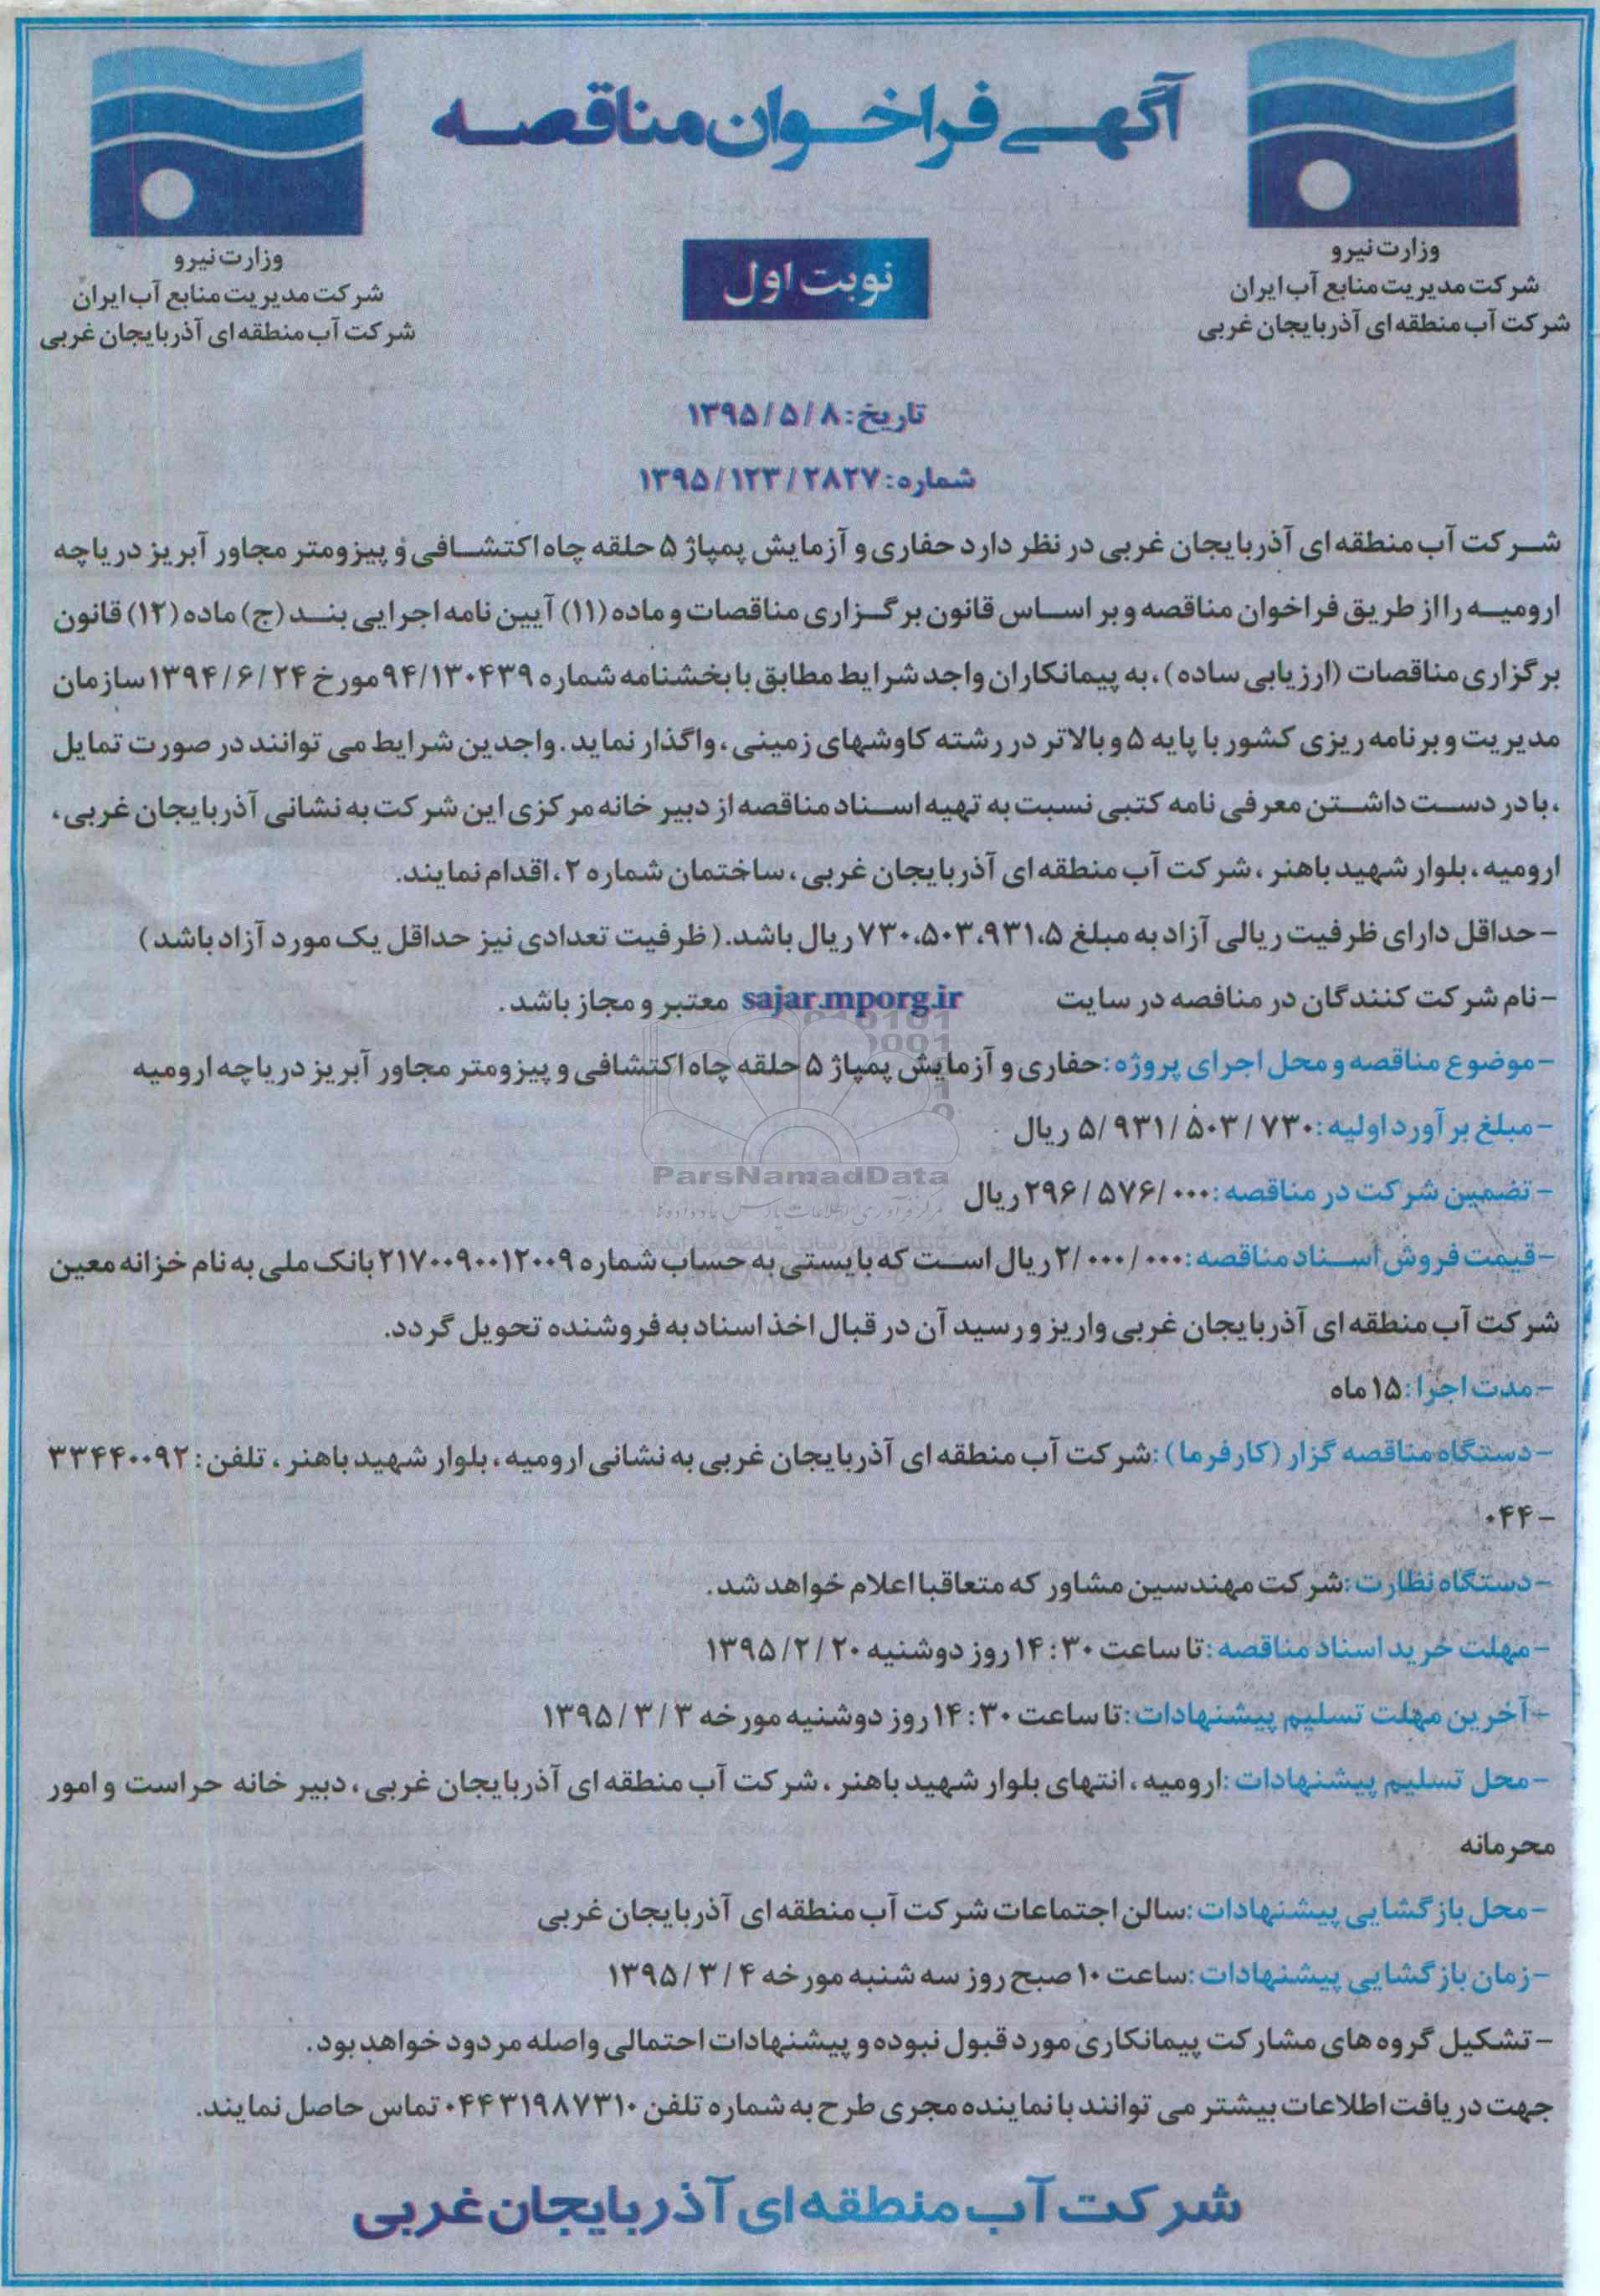 آگهی فراخوان مناقصه
وزارت نیرو
شرکت مدیریت منابع آب ایران
شرکت آب منطقه ای آذربایجان غربی
وزارت نیرو
شرکت مدیریت منابع آب ایران
شرکت آب منطقه ای آذربایجان غربی
نوبت اول
تاریخ: ۱۳۹۵/۵/۸
شماره: ۱۳۹۵/۱۲۳/۲۸۲۷
شرکت آب منطقه ای آذربایجان غربی در نظر دارد حفاری و آزمایش پمپاژ ۵ حلقه چاه اکتشافی و پیزومتر مجاور آبریز دریاچه
ارومیه را از طریق فراخوان مناقصه و بر اساس قانون برگزاری مناقصات و ماده (۱۱) آیین نامه اجرایی بند (ج) ماده (۱۲) قانون
برگزاری مناقصات (ارزیابی ساده)، به پیمانکاران واجد شرایط مطابق با بخشنامه شماره ۹۴/۱۳۰۴۳۹ مورخ ۱۳۹۴/۶/۲۴ سازمان
مدیریت و برنامه ریزی کشور با پایه ۵ و بالاتر در رشته کاوشهای زمینی، واگذار نماید. واجدین شرایط می توانند در صورت تمایل
، با در دست داشتن معرفی نامه کتبی نسبت به تهیه اسناد مناقصه از دبیر خانه مرکزی این شرکت به نشانی آذربایجان غربی،
ارومیه، بلوار شهید باهنر، شرکت آب منطقه ای آذربایجان غربی، ساختمان شماره ۲، اقدام نمایند.
-حداقل دارای ظرفیت ریالی آزاد به مبلغ ۷۳۰،۵۰۳،۹۳۱،۵ ریال باشد. (ظرفیت تعدادی نیز حداقل یک مورد آزاد باشد)
-نام شرکت کنندگان در منافصه در سایت sajar.mporg.ir معتبر و مجاز باشد.
-موضوع مناقصه و محل اجرای پروژه: حفاری و آزمایش پمپاژ ۵ حلقه چاه اکتشافی و پیزومتر مجاور آبریز دریاچه ارومیه
-مبلغ برآورد اولیه: ۵/۹۳۱/۵۰۳/۷۳۰ ریال
ParsNamadData
-تضمین شرکت در مناقصه: ۲۹۶/۵۷۶/۰۰۰ ریال
-قیمت فروش اسناد مناقصه: ۲/۰۰۰/۰۰۰ ریال است که بایستی به حساب شماره ۲۱۷۰۰۹۰۰۱۲۰۰۹ بانک ملی به نام خزانه معین
شرکت آب منطقه ای آذربایجان غربی واریز و رسید آن در قبال اخذ اسناد به فروشنده تحویل گردد.
-مدت اجرا: ۱۵ ماه
-دستگاه مناقصه گزار (کارفرما): شرکت آب منطقه ای آذربایجان غربی به نشانی ارومیه، بلوار شهید باهنر، تلفن: ۳۳۴۴۰۰۹۲
-۰۴۴
-دستگاه نظارت: شرکت مهندسین مشاور که متعاقبا اعلام خواهد شد.
-مهلت خرید اسناد مناقصه: تا ساعت ۱۴:۳۰ روز دوشنبه ۱۳۹۵/۲/۲۰
-آخرین مهلت تسلیم پیشنهادات: تا ساعت ۱۴:۳۰ روز دوشنبه مورخه ۱۳۹۵/۳/۳
-محل تسلیم پیشنهادات: ارومیه، انتهای بلوار شهید باهنر، شرکت آب منطقه ای آذربایجان غربی، دبیر خانه حراست و امور
محرمانه
-محل بازگشایی پیشنهادات: سالن اجتماعات شرکت آب منطقه ای آذربایجان غربی
-زمان بازگشایی پیشنهادات: ساعت ۱۰ صبح روز سه شنبه مورخه ۱۳۹۵/۳/۴
-تشکیل گروه های مشارکت پیمانکاری مورد قبول نبوده و پیشنهادات احتمالی واصله مردود خواهد بود.
جهت دریافت اطلاعات بیشتر می توانند با نماینده مجری طرح به شماره تلفن ۰۴۴۳۱۹۸۷۳۱۰ تماس حاصل نمایند.
شرکت آب منطقه ای آذربایجان غربی